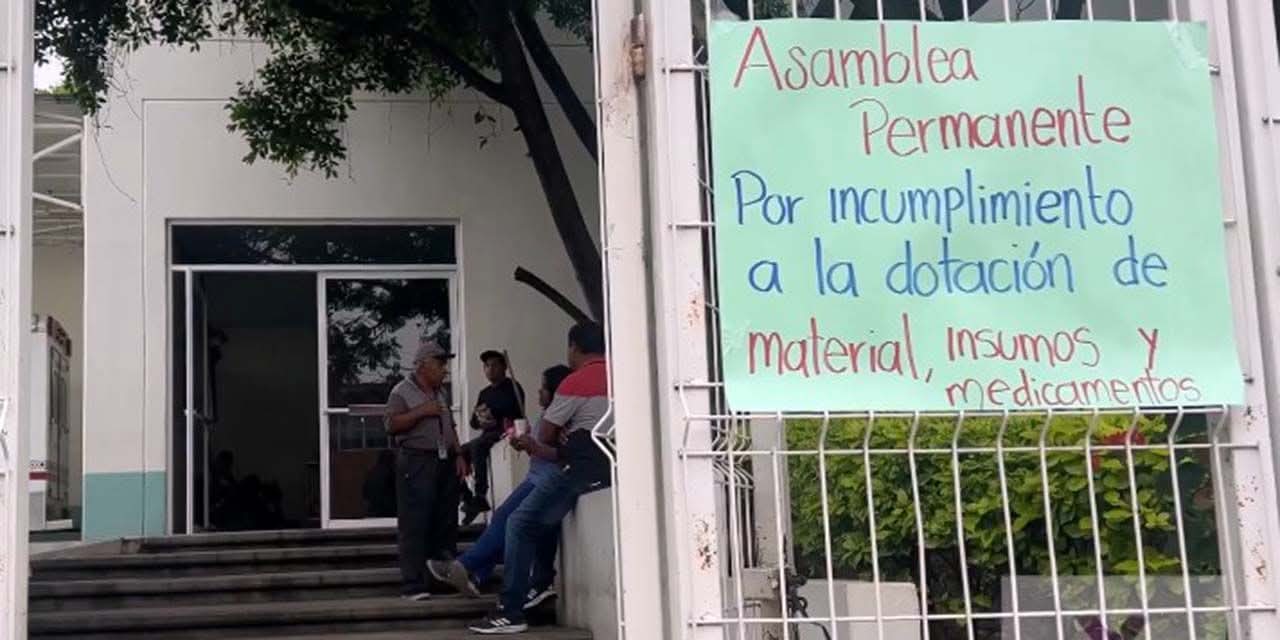 Asamblea
Permanente
Por incumplimiento
a la dotación de
material, insumos y
medicamentos